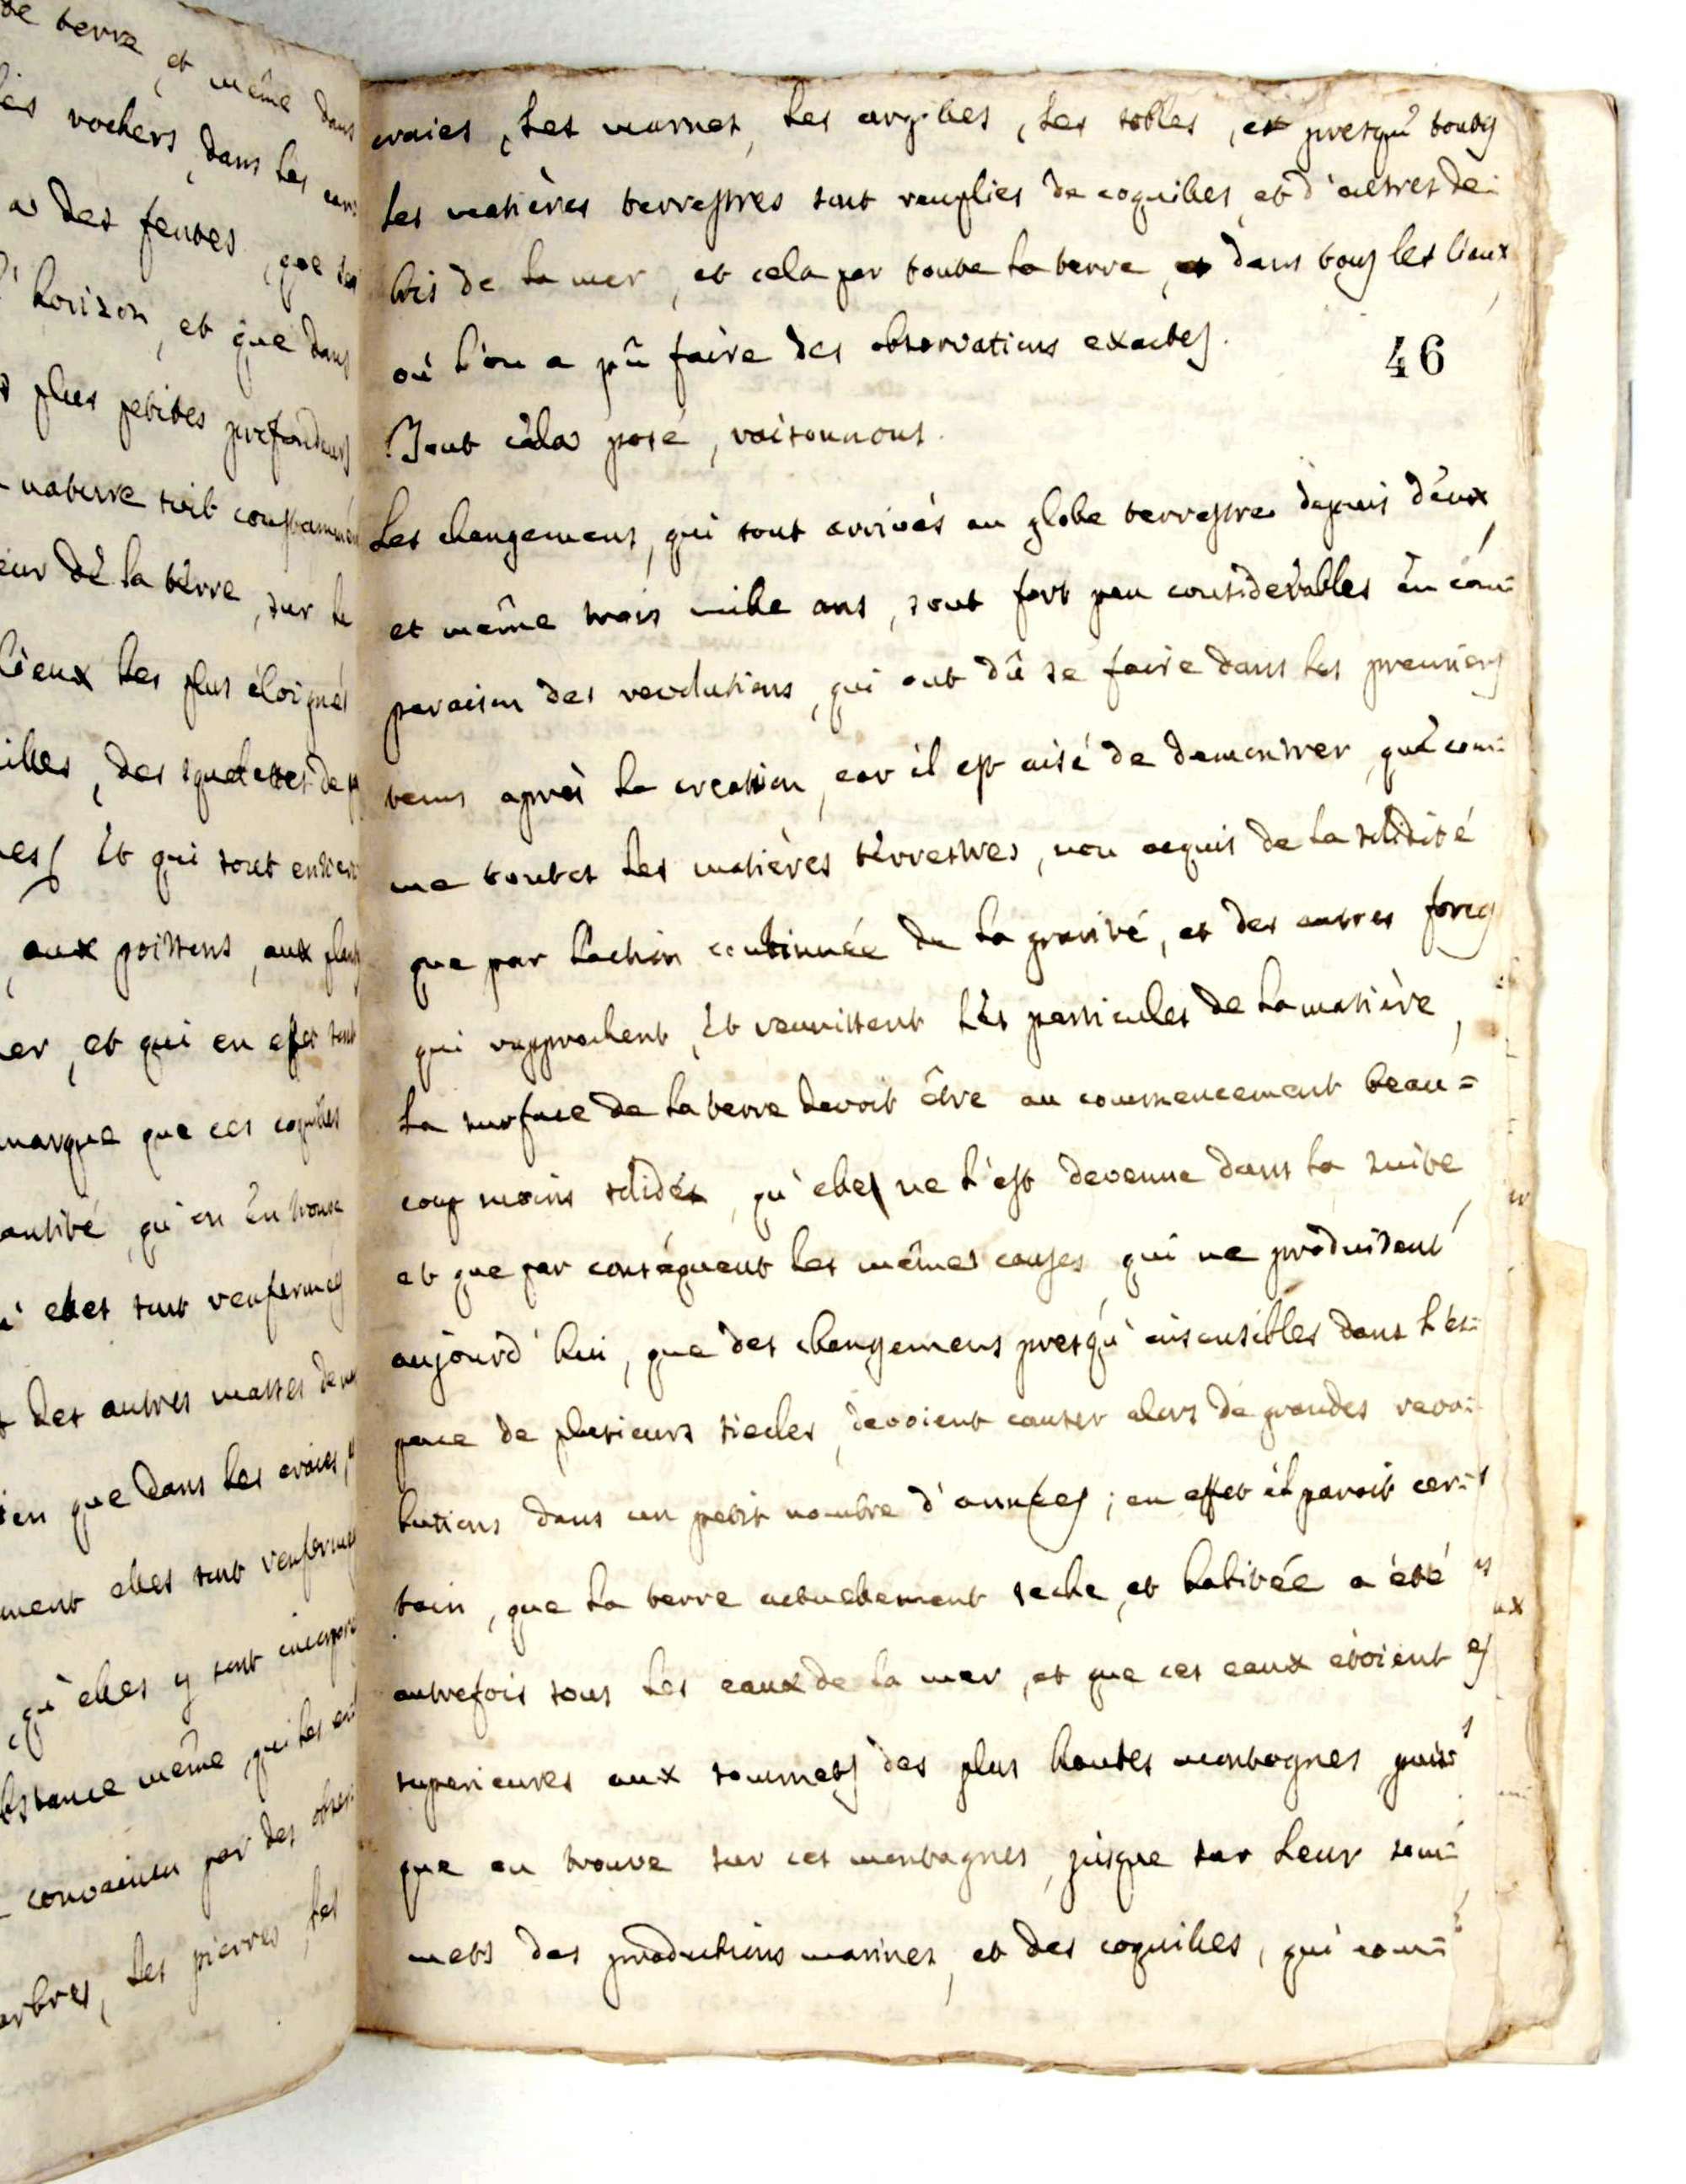 de terre, et même dans
les rochers, dans les car=
a des fentes, que les
l'horizon, et que dans
plus petites profondeurs
nature soit constammen
eur dè la tèrre, sur le
lieux les plus éloignés
illes, des squelettes de
es Et qui sont entier
, aux poissons, aux plan
er, et qui en effet sont
marque que ces coquilles
antité, qu'on èn trouve
' elles sont renfermées
des autres masses de
ien que dans les craies,
ment elles sont renfermé
, qu'elles y sont incorpor
bstance même, qui les en
convaincu par des obser=
arbres, les pierres, les
craies, les marnes, les argilles, les sables, et presqu' toutes
les matières terrestres sont remplies de coquilles, et d'autres dé=
bris de la mer, et cela par toute la terre, et dans tous les lieux,
où l'on a pû faire des observations exactes.
46
Tout cèla posé, raisonnons.
Les changemens, qui sont arrivés au globe terrestre depuis dèux,
et même trois mille ans, sont fort peu considèrables èn com=
paraison des revolutions, qui ont dû se faire dans les premiers
tems après la creation, car il est aisé de demontrer, què com=
me toutes les matières tèrrestres, non acquis de la solidité
que par l'action continuée de la gravité, et des autres forces
qui rapprochent, Et reunissent lès particules de la matière,
la surface de la terre devoit être au commencement beau=
coup moins solide, qu'elle ne l'est devenue dans la suite,
et que par conséquent les mêmes causes qui ne produisent
aujourd'hui, que des changemens presqu' insensibles dans l'es=
pace de plusieurs siecles, devoient causer alors de grandes revo=
lutions dans un petit nombre d'années; en effet il paroit cer=
tain, que la terre actuellement seche, et habitée a été
autrefois sous les eaux de la mer, et que ces eaux étoient
superieures aux sommets des plus hautes montagnes, puis=
que on trouve sur ces montagnes, jusque sur leur som=
mets des productions marines, et des coquilles, qui com=